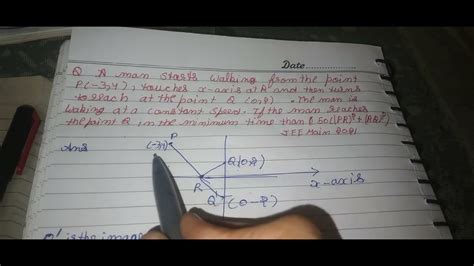 Date
Q. A man starts walking from the point
P(-3,4), touches x-axis at R and then turns
to reach at the point Q (0,2). The man is
walking at a constant speed. If the man reaches
the point Q in the minimum time then (50((PR)²+(RQ)²)
JEE Main 2021
Ans
P
(-3,4)
Q(0,2)
R
x-axis
Q'
(0-2)
Q' is the image